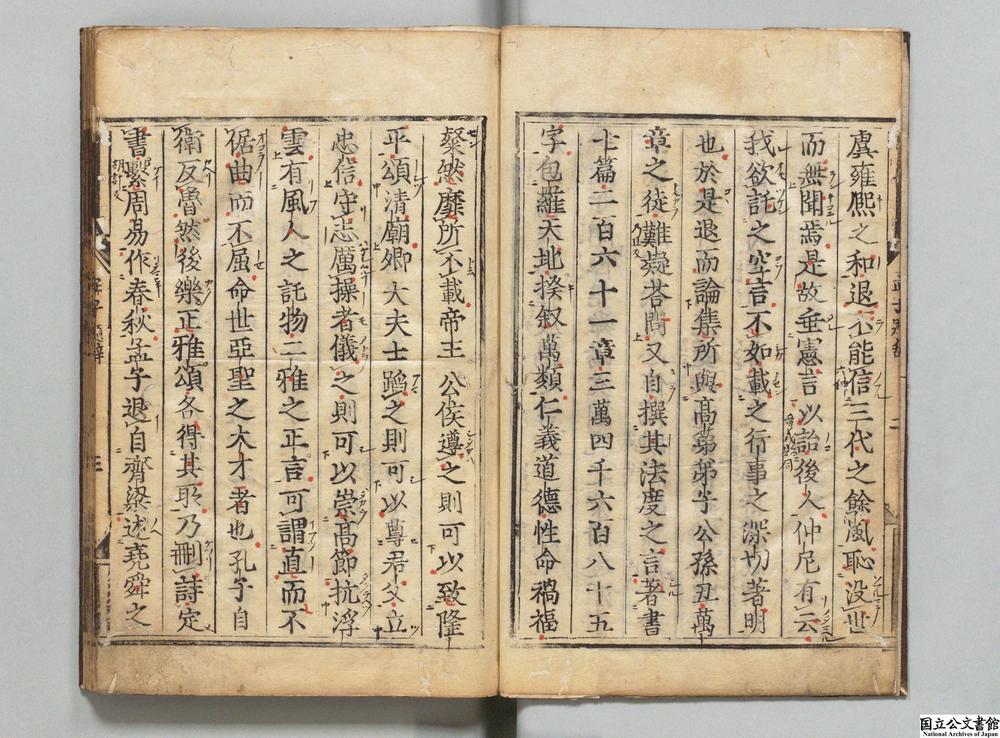 虞雍熙之和退不能信三代之餘風恥没世
而無聞焉是故垂憲言以詒後人仲尼有云
我欲託之空言不如載之行事之深切著明
也於是退而論集所與髙弟弟子公孫丑萬
章之徒難疑荅問又自撰其法度之言著書
七篇二百六十一章三萬四千六百八十五
字包羅天地揆叙萬類仁義道德性命禍福
粲然靡所不載帝王公侯遵之則可以致隆
平頌清廟卿大夫士蹈之則可以尊君父立
忠信守志厲操者儀之則可以崇髙節抗浮
雲有風人之託物二雅之正言可謂直而不
倨曲而不屈命世亞聖之大才者也孔子自
衛反魯然後樂正雅頌各得其所乃刪詩定
書繫周易作春秋孟子退自齊梁述堯舜之
三
国立公文書館
National Archives of Japan